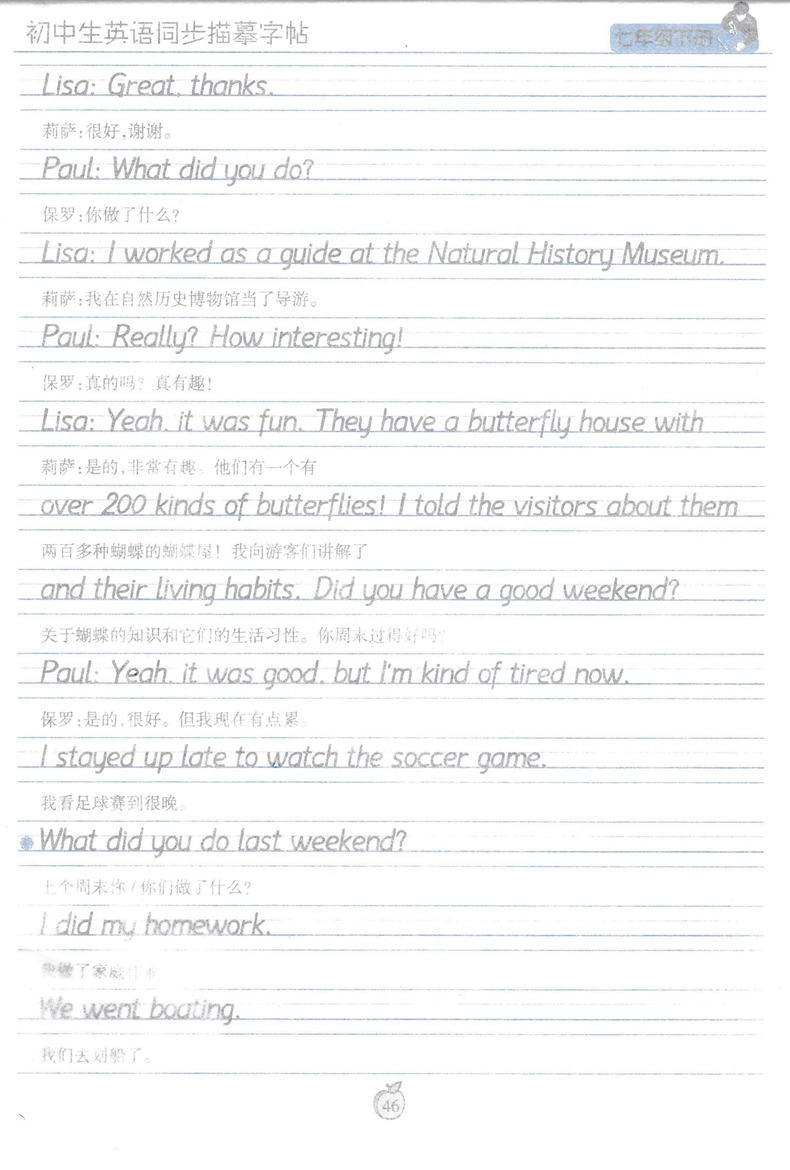 初中生英语同步描摹字帖
七年级下册
Lisa: Great, thanks.
莉萨:很好,谢谢。
Paul: What did you do?
保罗:你做了什么?
Lisa: I worked as a guide at the Natural History Museum.
莉萨:我在自然历史博物馆当了导游。
Paul: Really? How interesting!
保罗:真的吗? 真有趣!
Lisa: Yeah, it was fun. They have a butterfly house with
莉萨:是的,非常有趣。他们有一个有
over 200 kinds of butterflies! I told the visitors about them
两百多种蝴蝶的蝴蝶屋! 我向游客们讲解了
and their living habits. Did you have a good weekend?
关于蝴蝶的知识和它们的生活习性。你周末过得好吗?
Paul: Yeah, it was good, but I'm kind of tired now.
保罗:是的,很好。但我现在有点累。
I stayed up late to watch the soccer game.
我看足球赛到很晚。
What did you do last weekend?
上个周末你/你们做了什么?
I did my homework.
我做了家庭作业
We went boating.
我们去划船了。
46